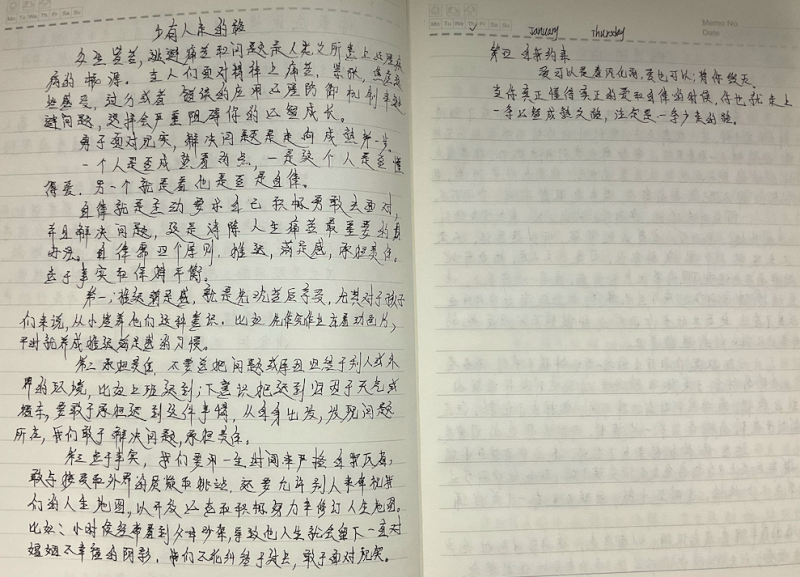 少有人走的路
众生皆苦，逃避痛苦和问题是人类所患上心理疾
病的根源。当人们面对精神上痛苦，紧张，焦虑等
感受，过分或者错误的应用心理防御机制来逃
避问题，这样会严重阻碍你的心智成长。
勇于面对现实，解决问题是走向成熟第一步。
一个人是否成熟看两点，一是这个人是否懂
得爱，另一个就是看他是否是自律。
自律就是主动要求自己积极勇敢去面对，
并且解决问题，这是消除人生痛苦最重要的
办法。自律需四个原则，推迟，满足感，承担责任，
忠于事实和保持平衡。
第一：推迟满足感，就是先吃苦后享受，尤其对于孩子
们来说，从小培养他们这种意识。比如 先作完作业在看动画片，
平时就养成推迟满足感的习惯。
第二 承担责任，不要总把问题或原因归咎于别人或外
界的环境，比如上班迟到；下意识把迟到归因于天气或
堵车，要敢于承担迟到这件事情，从自身出发，发现问题
所在，我们敢于解决问题，承担责任。
第三 忠于事实，我们要用一生时间来严格自我反省，
敢与接受和外界的质疑和挑战，还要允许别人来审视我
们的人生地图，以开放心态和积极努力来修订人生地图。
比如：小时侯经常看到父母吵架，导致他人生就会留下一直对
婚姻不幸福的阴影，我们不能纠结于过去，敢于面对现实。
January Thursday
第四 自我约束
爱可以是春风化雨，爱也可以
当你真正懂得真正的爱和自律的时候，你也就走上
一条心智成熟之旅，注定是一条少有的路。
Mo Tu We Th Fr Sa Su
Memo No.
Date